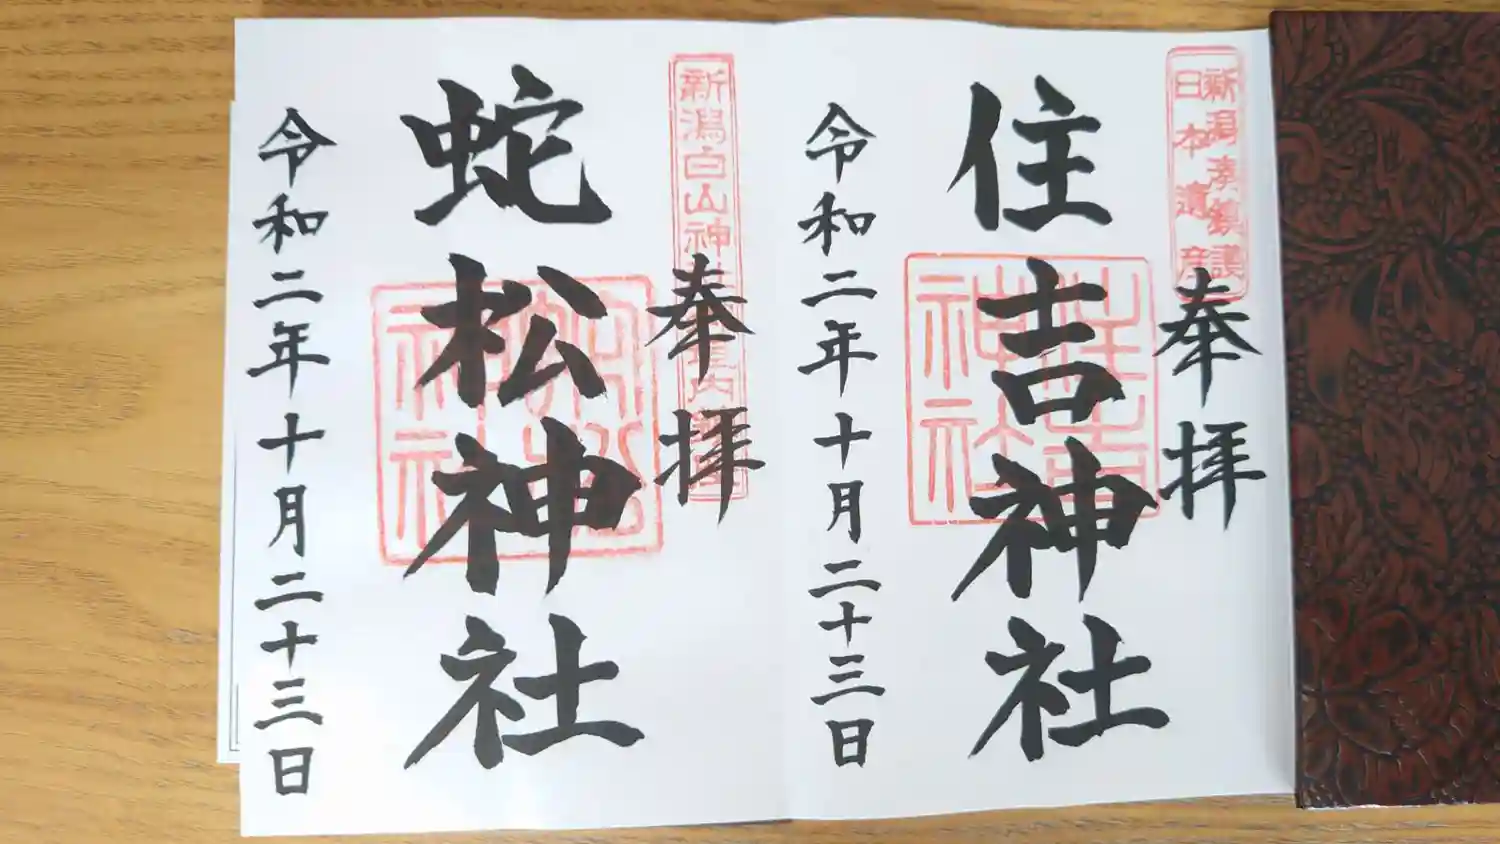 新潟湊鎮護
日本遺産
奉拝
住吉神社
住吉
神社
令和二年十月二十三日
新潟白山神
奉拝
蛇松神社
神社
令和二年十月二十三日